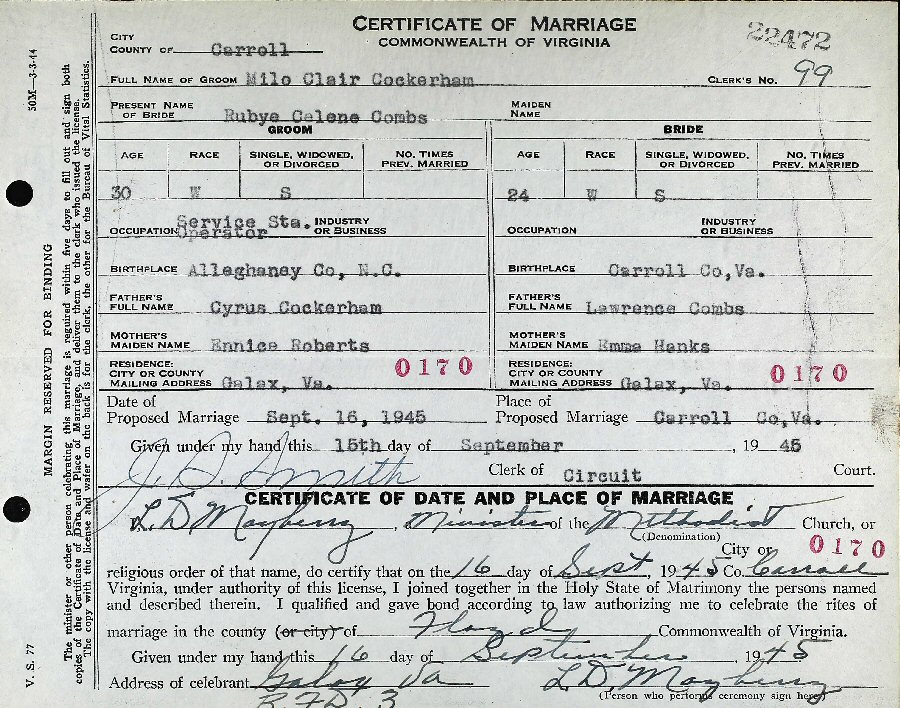 CERTIFICATE OF MARRIAGE
COMMONWEALTH OF VIRGINIA
22472
CITY
COUNTY OF Carroll
FULL NAME OF GROOM Milo Clair Cockerham CLERK'S NO. 99
PRESENT NAME OF BRIDE Rubye Celene Combs MAIDEN NAME
GROOM BRIDE
AGE RACE SINGLE, WIDOWED, OR DIVORCED NO. TIMES PREV. MARRIED AGE RACE SINGLE, WIDOWED, OR DIVORCED NO. TIMES PREV. MARRIED
30 W S 24 W S
OCCUPATION Service Sta. Operator INDUSTRY OR BUSINESS OCCUPATION INDUSTRY OR BUSINESS
BIRTHPLACE Alleghaney Co, N.C. BIRTHPLACE Carroll Co,Va.
FATHER'S FULL NAME Cyrus Cockerham FATHER'S FULL NAME Lawrence Combs
MOTHER'S MAIDEN NAME Ennice Roberts MOTHER'S MAIDEN NAME Emma Hanks
RESIDENCE: CITY OR COUNTY 0170 RESIDENCE: CITY OR COUNTY 0170
MAILING ADDRESS Galax, Va. MAILING ADDRESS Galax, Va.
Date of Proposed Marriage Sept. 16, 1945 Place of Proposed Marriage Carroll Co,Va.
Given under my hand this 15th day of September, 19 45
J. D. Smith Clerk of Circuit Court.
CERTIFICATE OF DATE AND PLACE OF MARRIAGE
I, L. D. Mayberry, Minister of the Methodist Church, or
(Denomination)
City or 0170
religious order of that name, do certify that on the 16 day of Sept, 1945 Co. Carroll
Virginia, under authority of this license, I joined together in the Holy State of Matrimony the persons named
and described therein. I qualified and gave bond according to law authorizing me to celebrate the rites of
marriage in the county (or city) of Floyd Commonwealth of Virginia.
Given under my hand this 16 day of September, 1945
Address of celebrant Galax Va L. D. Mayberry
R.F.D. 3 (Person who performs ceremony sign here)
50M—3-3-44
MARGIN RESERVED FOR BINDING
The minister or other person celebrating this marriage is required within five days to fill out and sign both
copies of the Certificate of Date and Place of Marriage, and deliver them to the clerk who issued the license.
The copy with the license and wafer on the back is for the clerk, the other for the Bureau of Vital Statistics.
V. S. 77